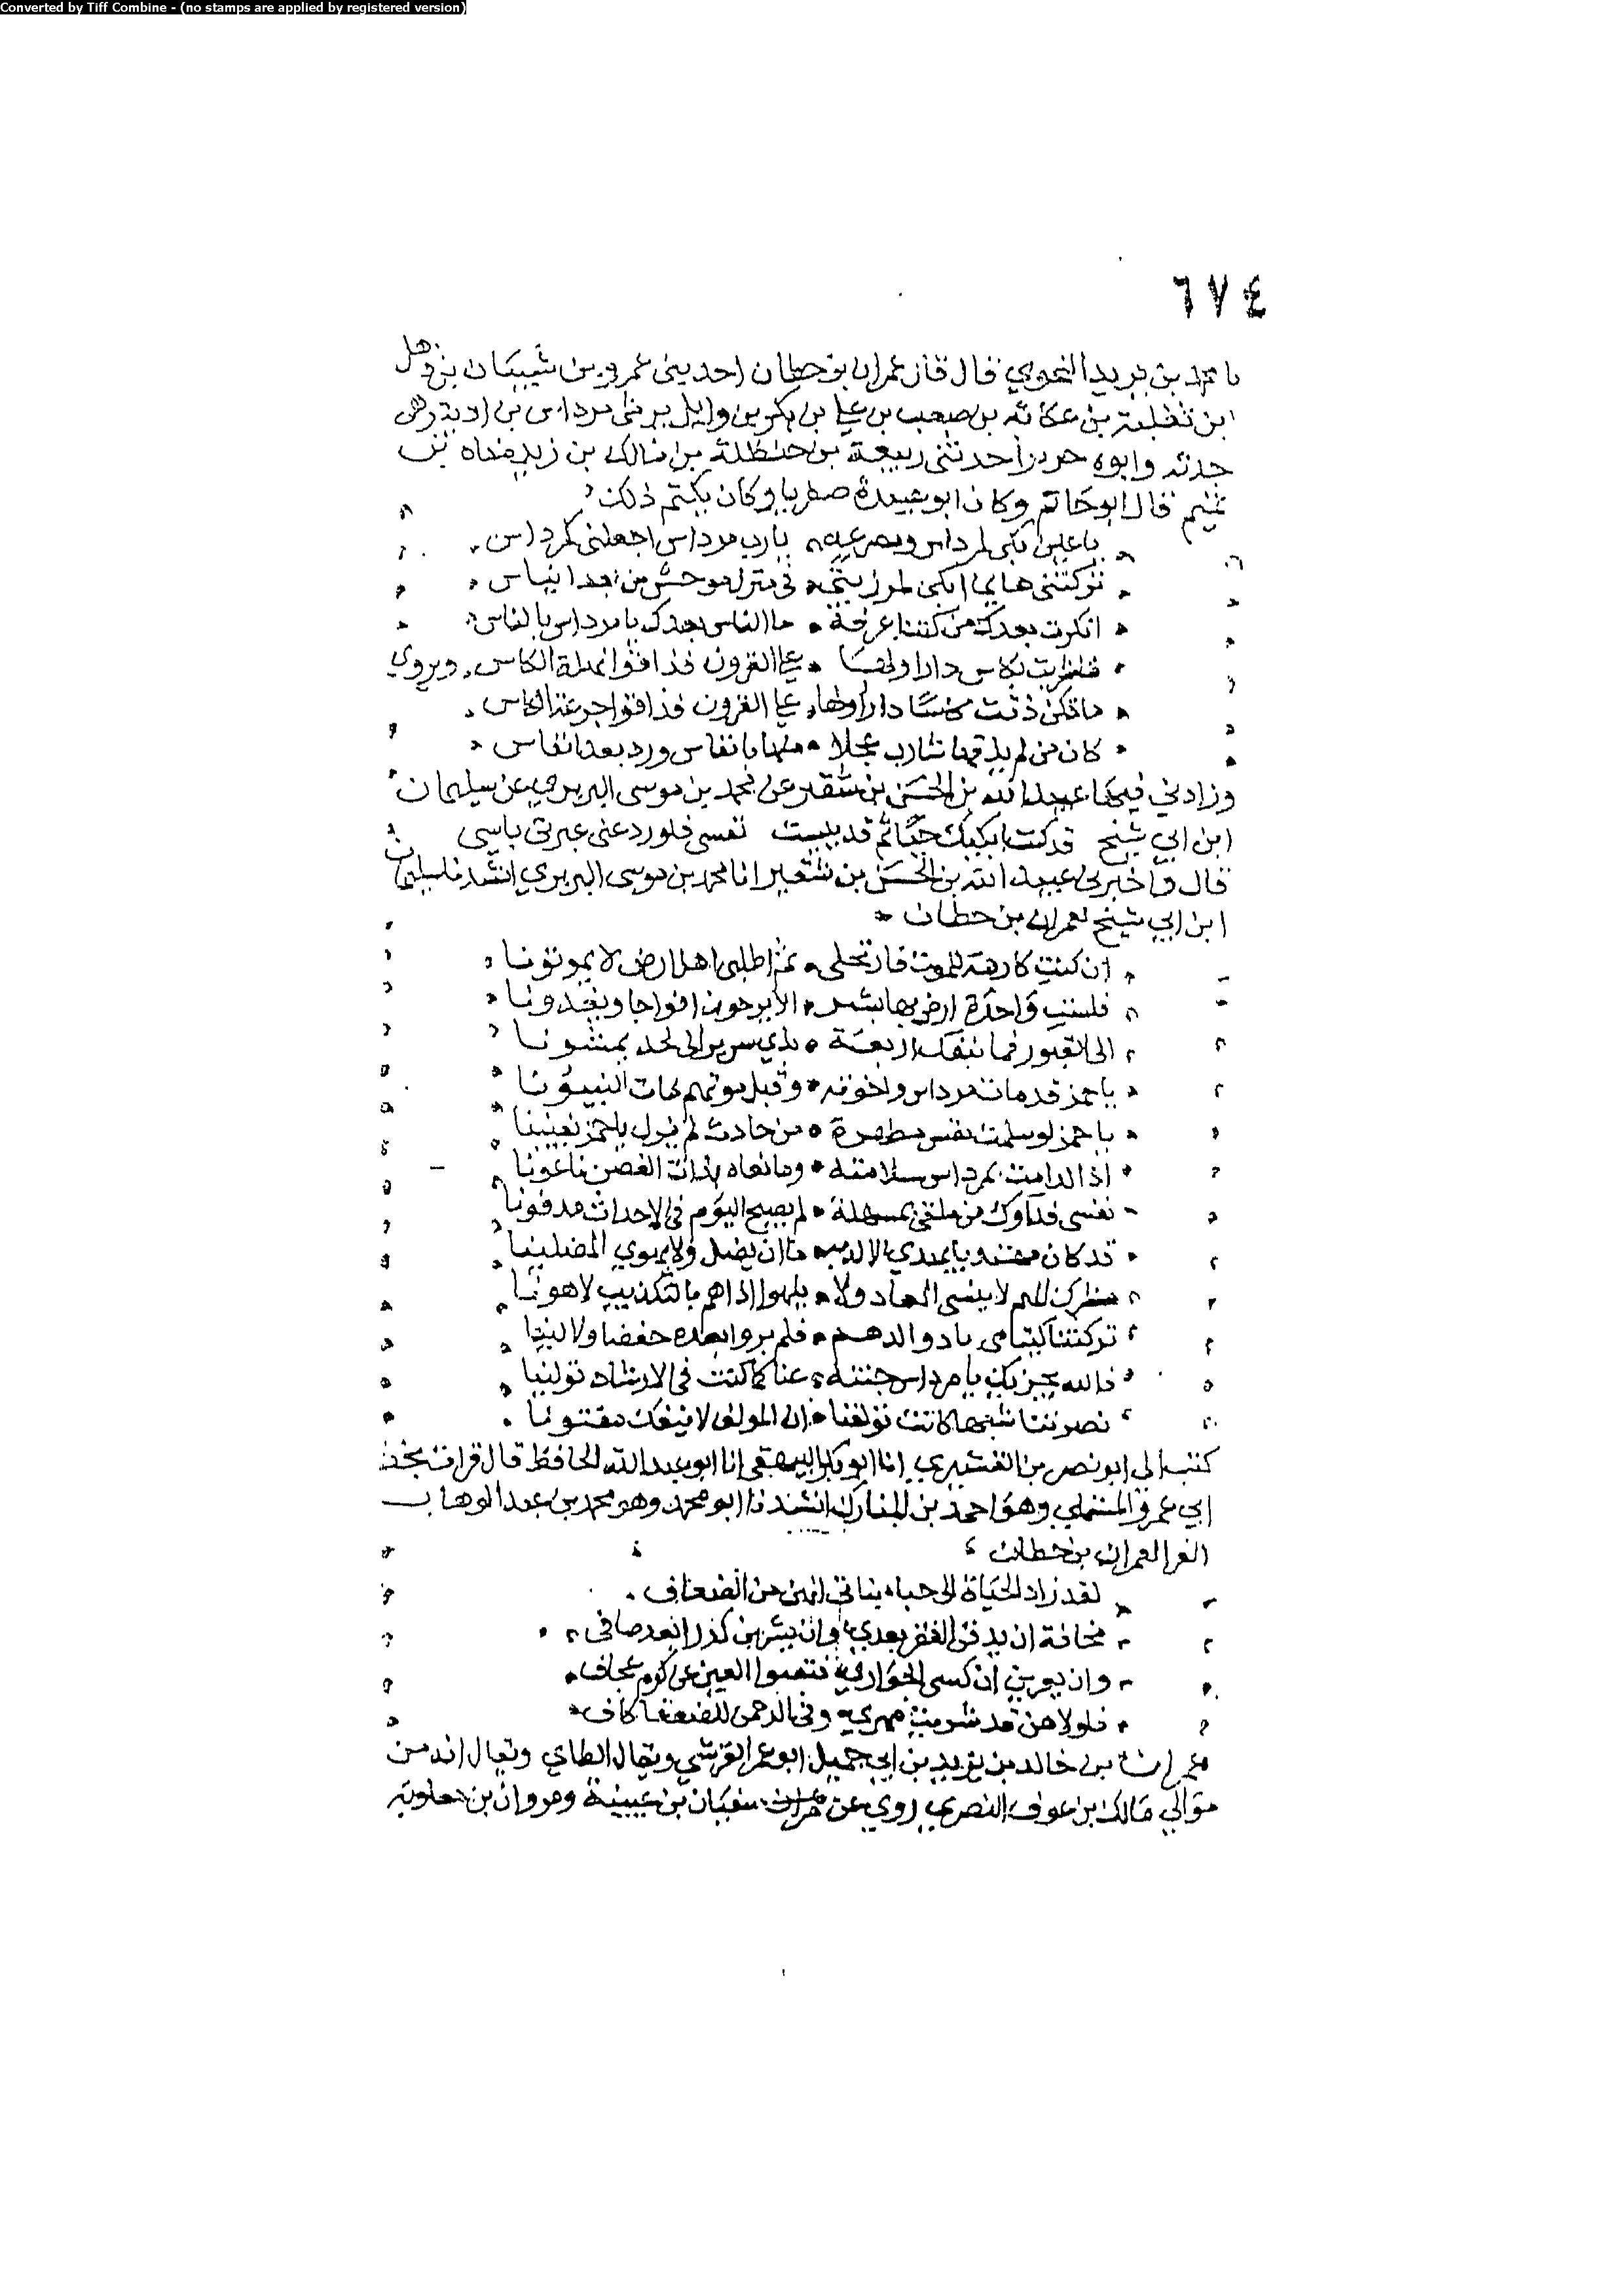 Converted by Tiff Combine - (no stamps are applied by registered version)
٦٧٤
نا محمد بن يزيد النحوي قال قال عمران بن حطان احد بني عمرو بن شيبان بن ذهل
ابن ثعلبة بن عكابة بن صعب بن علي بن بكر بن وايل يرثي مرداس بن ادية وهي
جدته وابوه حدير احد بني ربيعة بن حنظلة بن مالك بن زيد مناه بن
تميم قال ابو حاتم وكان ابو عبيدة صفريا وكان يكتم ذلك
يا عين بكي لمرداس ومصرعه يا رب مرداس اجعلني كمرداس
تركتني هايما ابكي لمرزيتي في منزل موحش من بعد ايناس
انكرت بعدك من كنت اعرفه ما الناس بعدك يا مرداس بالناس
اما شربت بكاس دار اولها على القرون فذاقوا نهلة الكاس ويروى
ما تكن ذقت كاسا دار اولها على القرون فذاقوا جرعة الكاس
كان من لم يذقها شارب عجلا منها بانفاس ورد بعد انفاس
وزادني فيها عبيد الله بن الحسن بن شقير عن محمد بن موسى البربري عن سليمان
ابن ابي شيخ قد كنت ابكيك حينا ثم قد يبست نفسي فما رد عني عبرتي ياسي
قال واخبرني عبيد الله بن الحسن بن شقير انا محمد بن موسى البربري انشد سليمان
ابن ابي شيخ لعمران بن حطان
ان كنت كارهة للموت فارتحلي ثم اطلبي اهل ارض لا يموتونا
فلست واجدة ارضا بها بشر الا يرحون افواجا ويغدونا
الى القبور فما تنفك اربعة بذي سرير الى لحد يمشونا
يا جمز قد مات مرداس واخوته وقبل موتهم مات النبيونا
يا جمز لو سلمت نفس مطهرة من حادث لم يزل يا جمز يعيينا
اذا لدامت لمرداس سلامته وما نعاه بذات الغصن ناعونا
نفسي فداوك من ملقى بمسهلة لم يصبح اليوم في الاجداث مدفونا
تركتنا كيتامى باد والدهم فلم يروا بعده خفضا ولا لينا
فالله يجزيك يا مرداس جنته عنا كما كنت في الارشاد تولينا
كتب الي ابو نصر بن القشيري انا ابو بكر البيهقي انا ابو عبد الله الحافظ قال قرات بخط
ابي عمرو المستملي وهو احمد بن المبارك انشدنا ابو محمد وهو محمد بن عبد الوهاب
الفرا لعمران بن حطان
لقد زاد الحياة الي حبا بناتي انهن من الضعاف
مخافة ان يذقن الفقر بعدي وان يشربن كدرا بعد صافي
وان يعرين ان كسي الجواري فتنبوا العين عن كرم عجاف
فلولا هن قد شريت مهري وفي الرحمن للضعفا كاف
عمران بن خالد بن يزيد بن ابي جميل ابو عمر القرشي ويقال الطاي ويقال انه من
موالي مالك بن عوف النصري روى عن سفيان بن عيينة ومروان بن معاوية